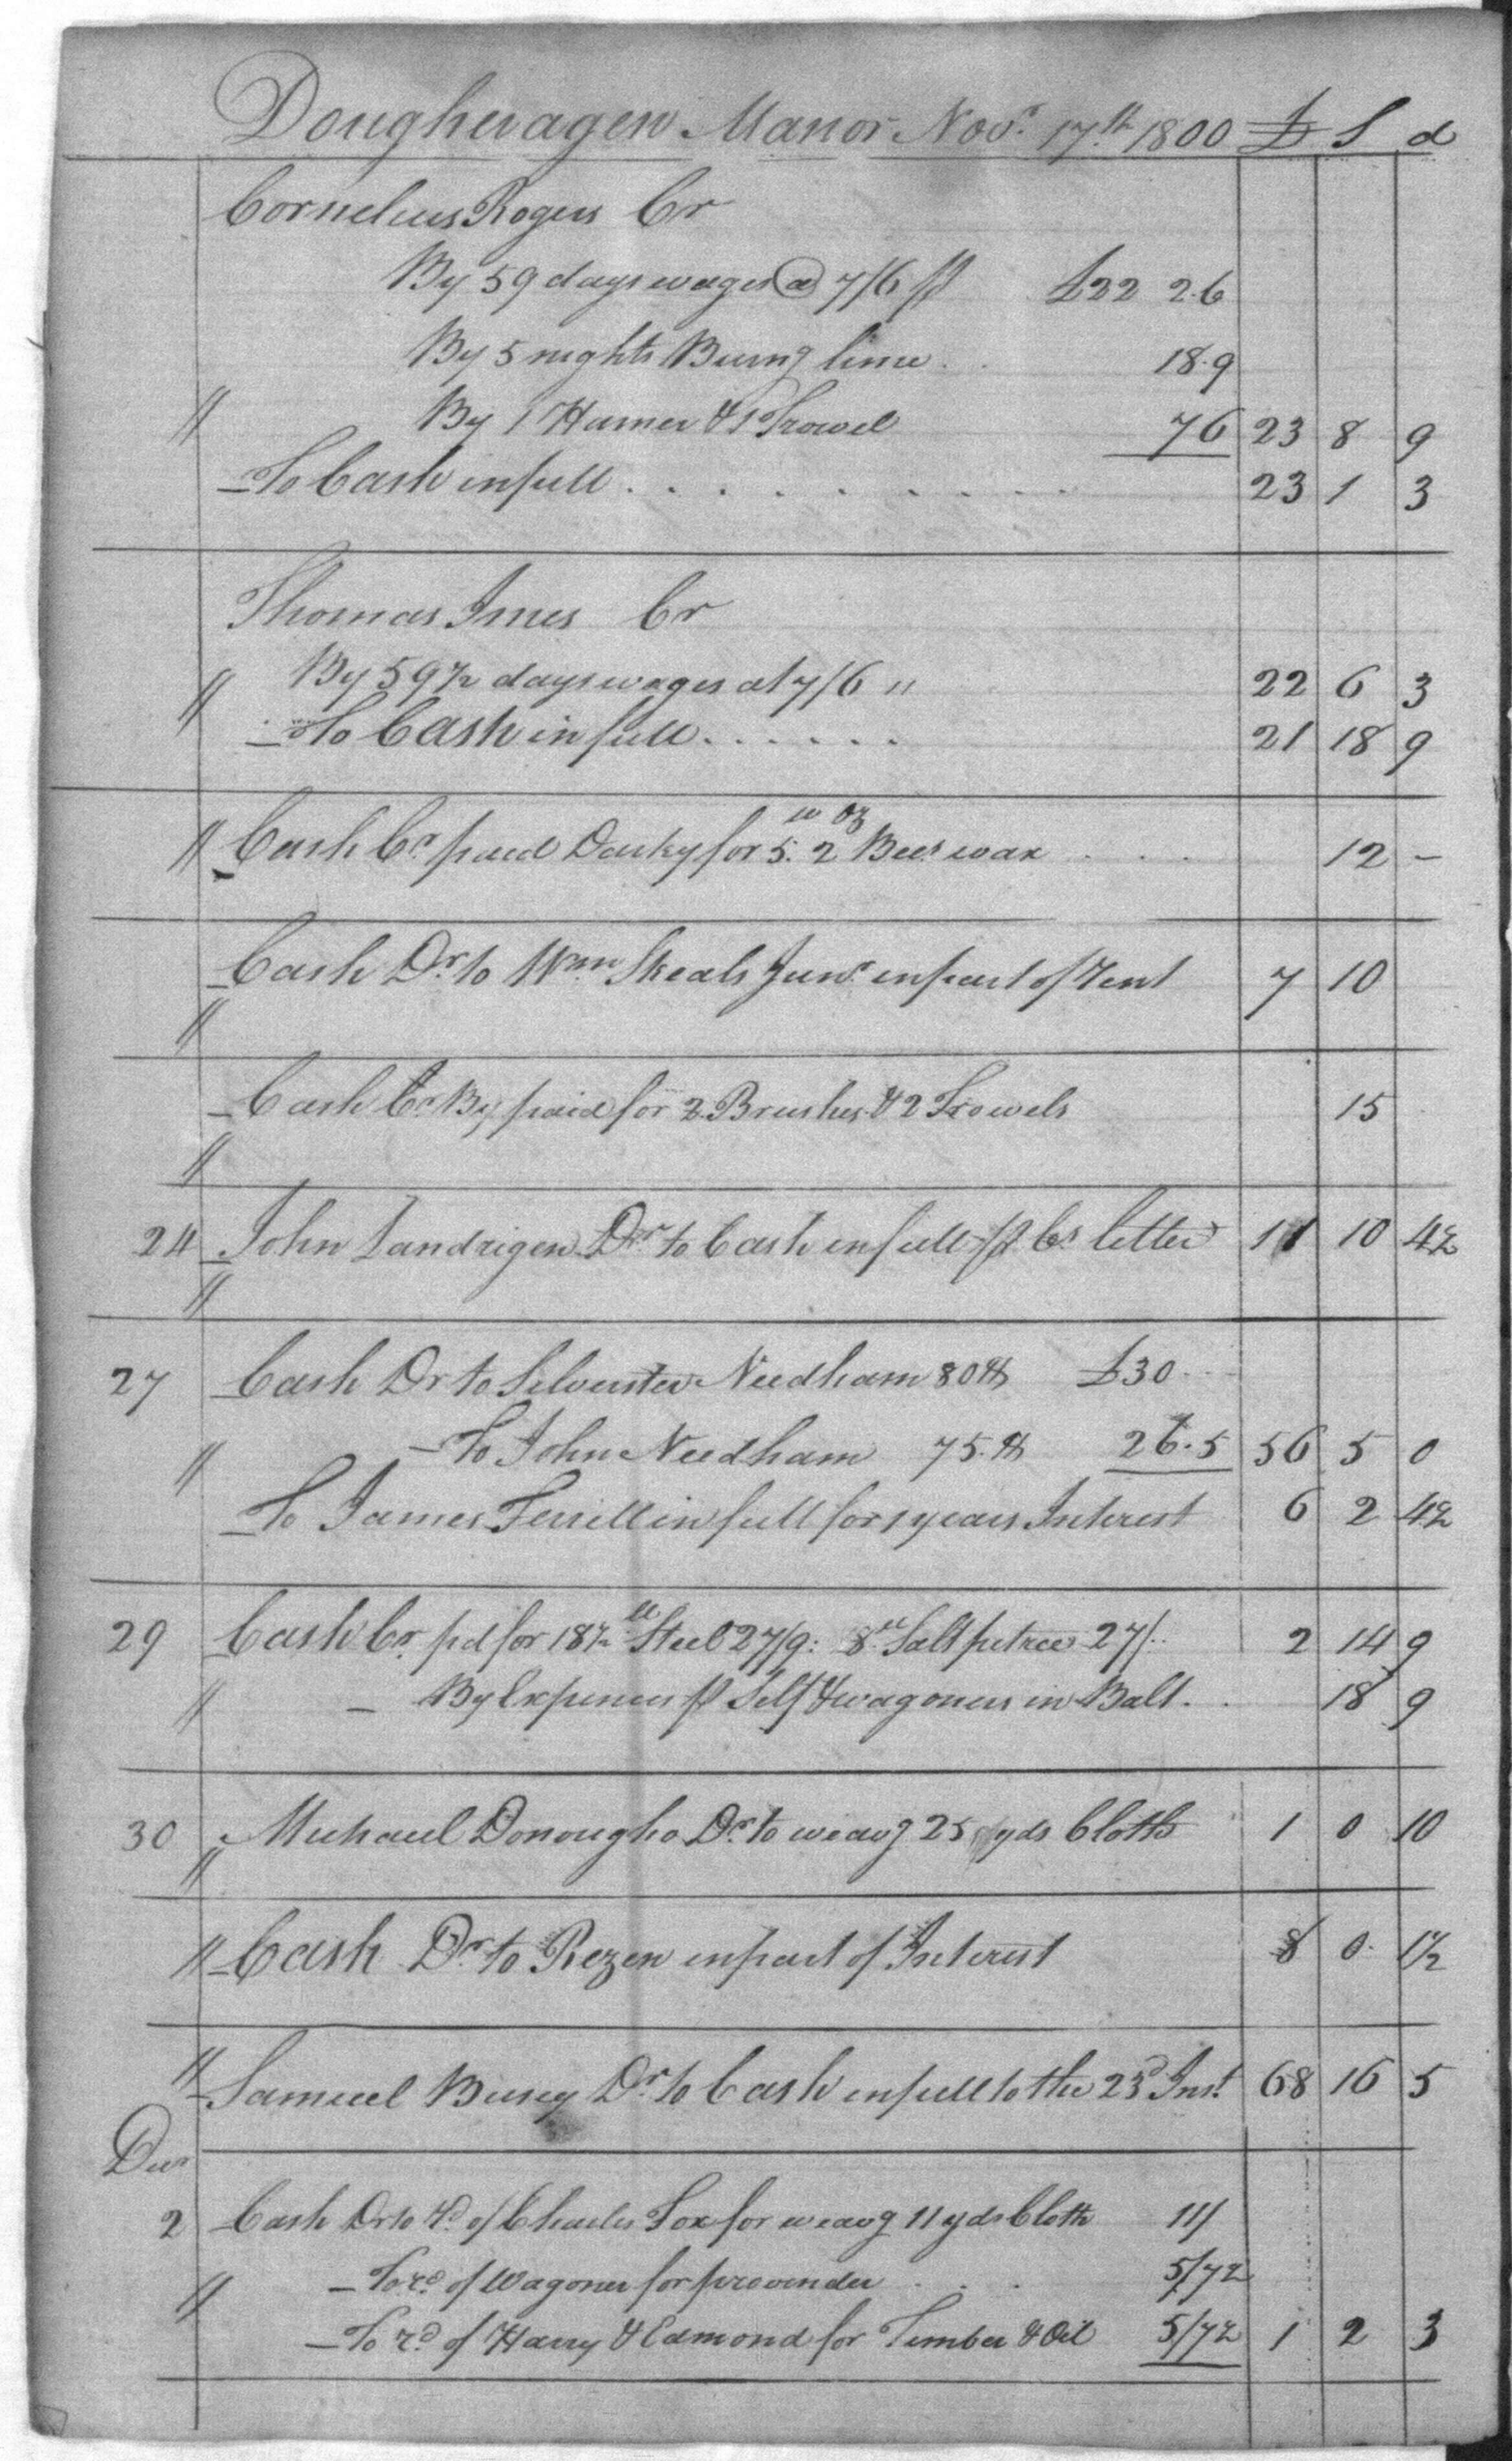 Dougheragen Manor Novr. 17th 1800 £ S d
Cornelius Rogers Cr
By 59 days wages @ 7/6 ⅌ £22 2.6
By 5 nights Burng lime . . 18.9
// By 1 Hamer & 1 Trowel 7 6 23 8 9
- To Cash in full . . . . . . . . . . 23 1 3
Thomas Imes Cr
// By 59½ days wages at 7/6 " 22 6 3
- To Cash in full . . . . . . 21 18 9
w oz
// Cash Cr. paid Dauky for 5. 2 Bees wax . . . 12 -
- Cash Dr. to Wm Skeals Junr. in part of rent 7 10
//
- Cash Cr By paid for 2 Brushes & 2 Trowels 15
//
24 John Landrigen Dr. to Cash in full ⅌ Cs letter 11 10 4½
//
27 Cash Dr to Silvester Needham 80 $ £30 . . .
// - To John Needham 75 $ 26.5 56 5 0
- To James Ferrill in full for 1 years Interest 6 2 4½
29 Cash Cr. pd for 18½ ll Steel 27/9: 8 ll Saltpetree 27/.. 2 14 9
// - By Expences ⅌ Self & wagoners in Balt. . 18 9
30 Michael Donougho Dr. to weavg 25 yds Cloth 1 0 10
//
// - Cash Dr. to Rezen in part of Interest 8 0 1½
// - Samuel Busey Dr. to Cash in full to the 23d Inst. 68 16 5
Decr
2 Cash Dr to rd. of Charles Fox for weavg 11 yds Cloth 11/
// - To rd. of Wagoner for provinder . . . 5/7½
- To rd. of Harry & Edmond for Timber & Oil 5/7½ 1 2 3